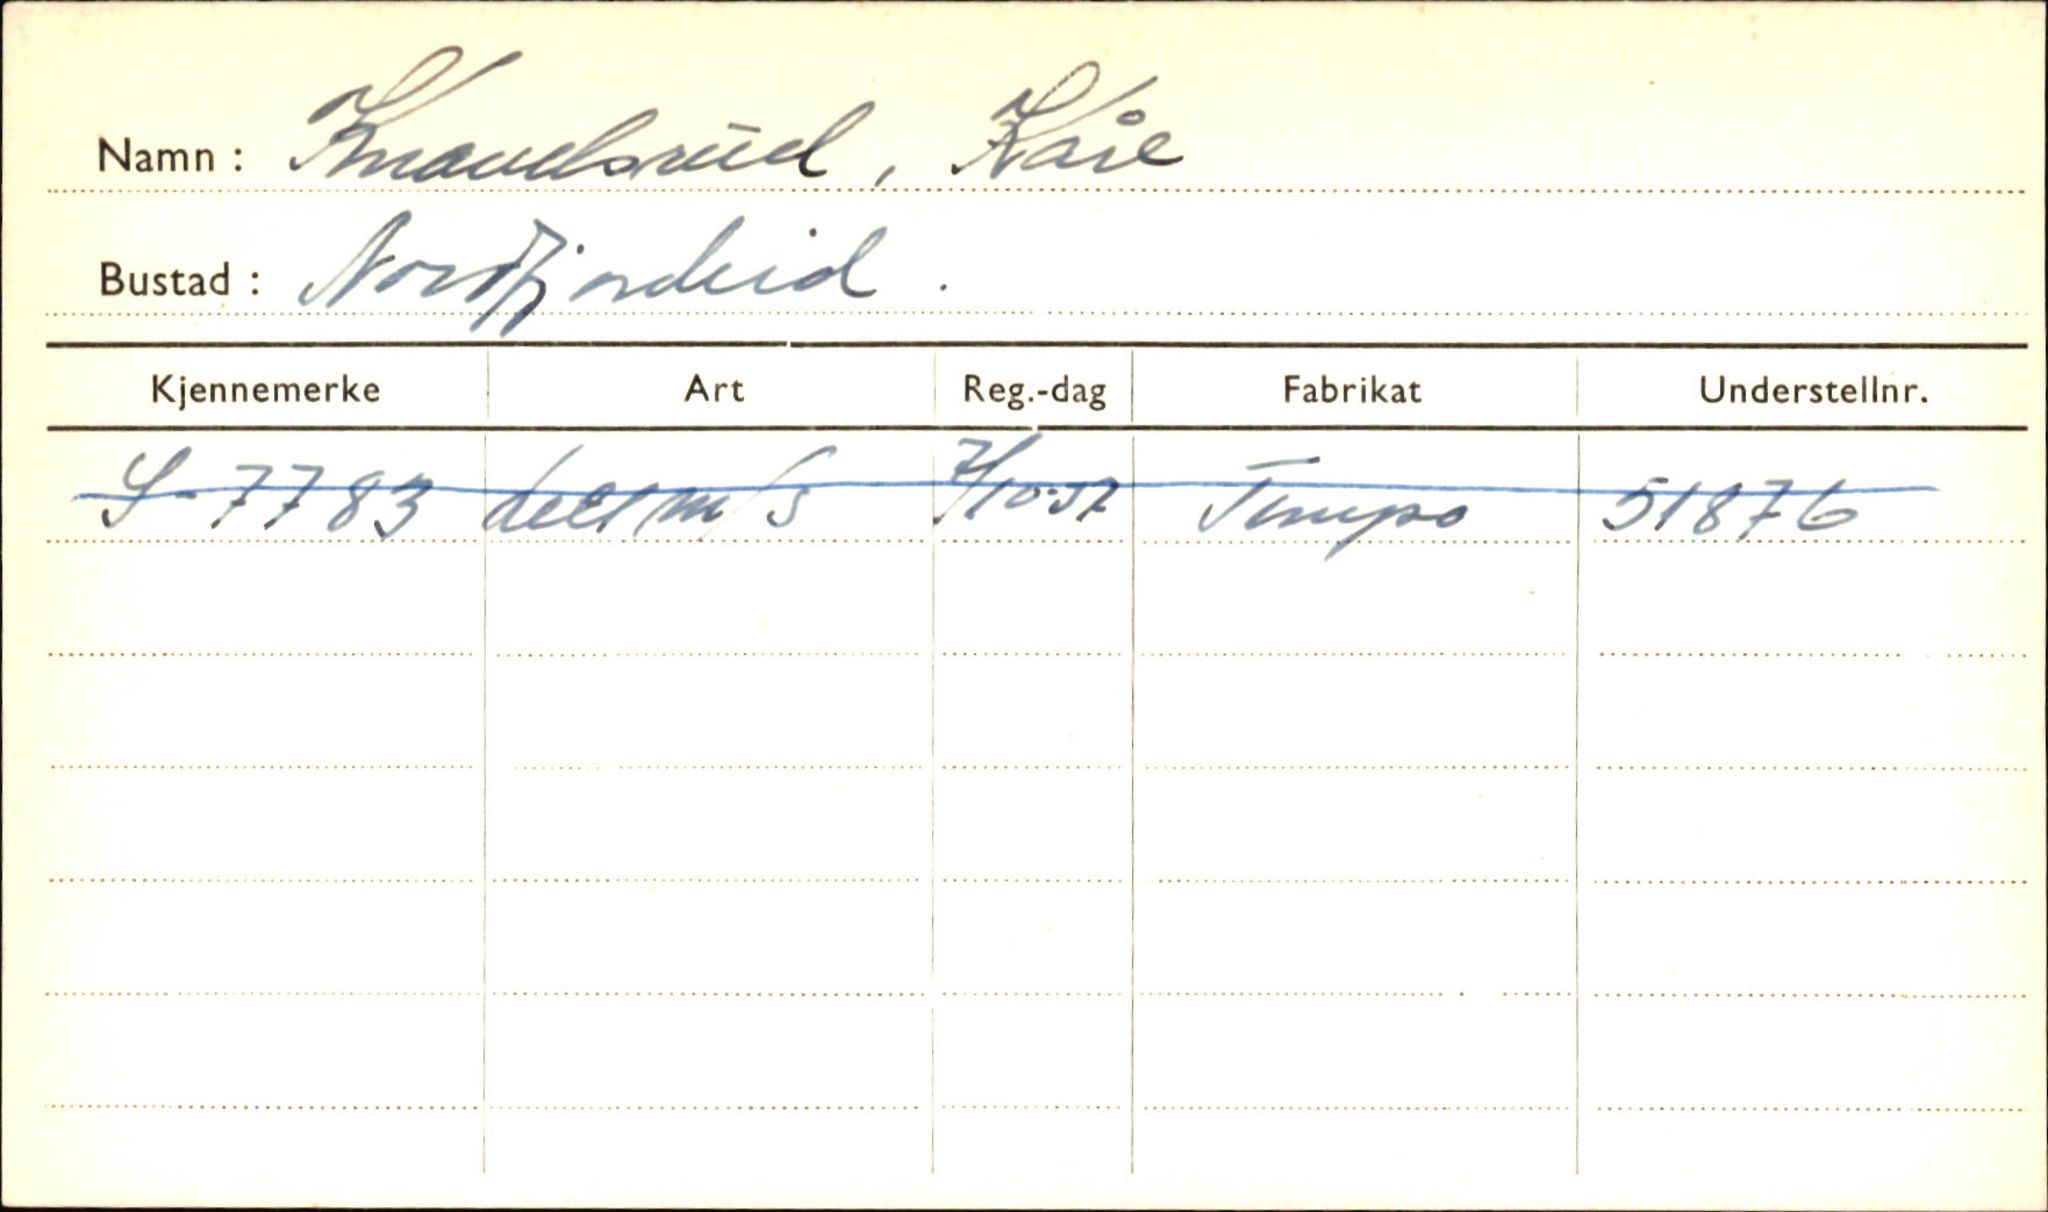 Namn: Knandsrud, Kåre
Bustad: Nordfjordeid.
Kjennemerke Art Reg.-dag Fabrikat Understellnr.
S-7783 lett m/s 7/10-57 Tempo 51876